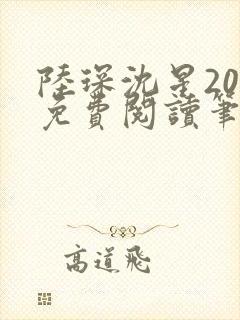 陸琛沈星20
免費閱讀筆
高道飛